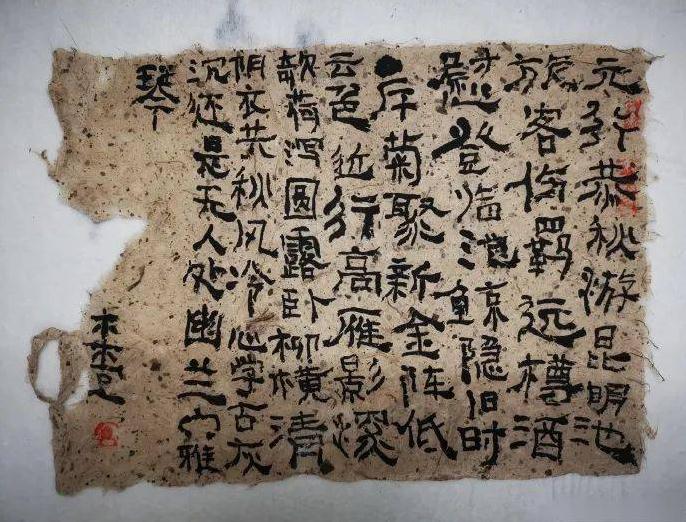 元行恭秋游昆明池
旅客伤羁远樽酒
慰登临池鲸隐旧时
岸菊聚新金阵低
云色近行高雁影深
欹荷泻圆露卧柳横清
阴衣共秋风冷心学古灰
沉还是无人处幽兰雅
琴下